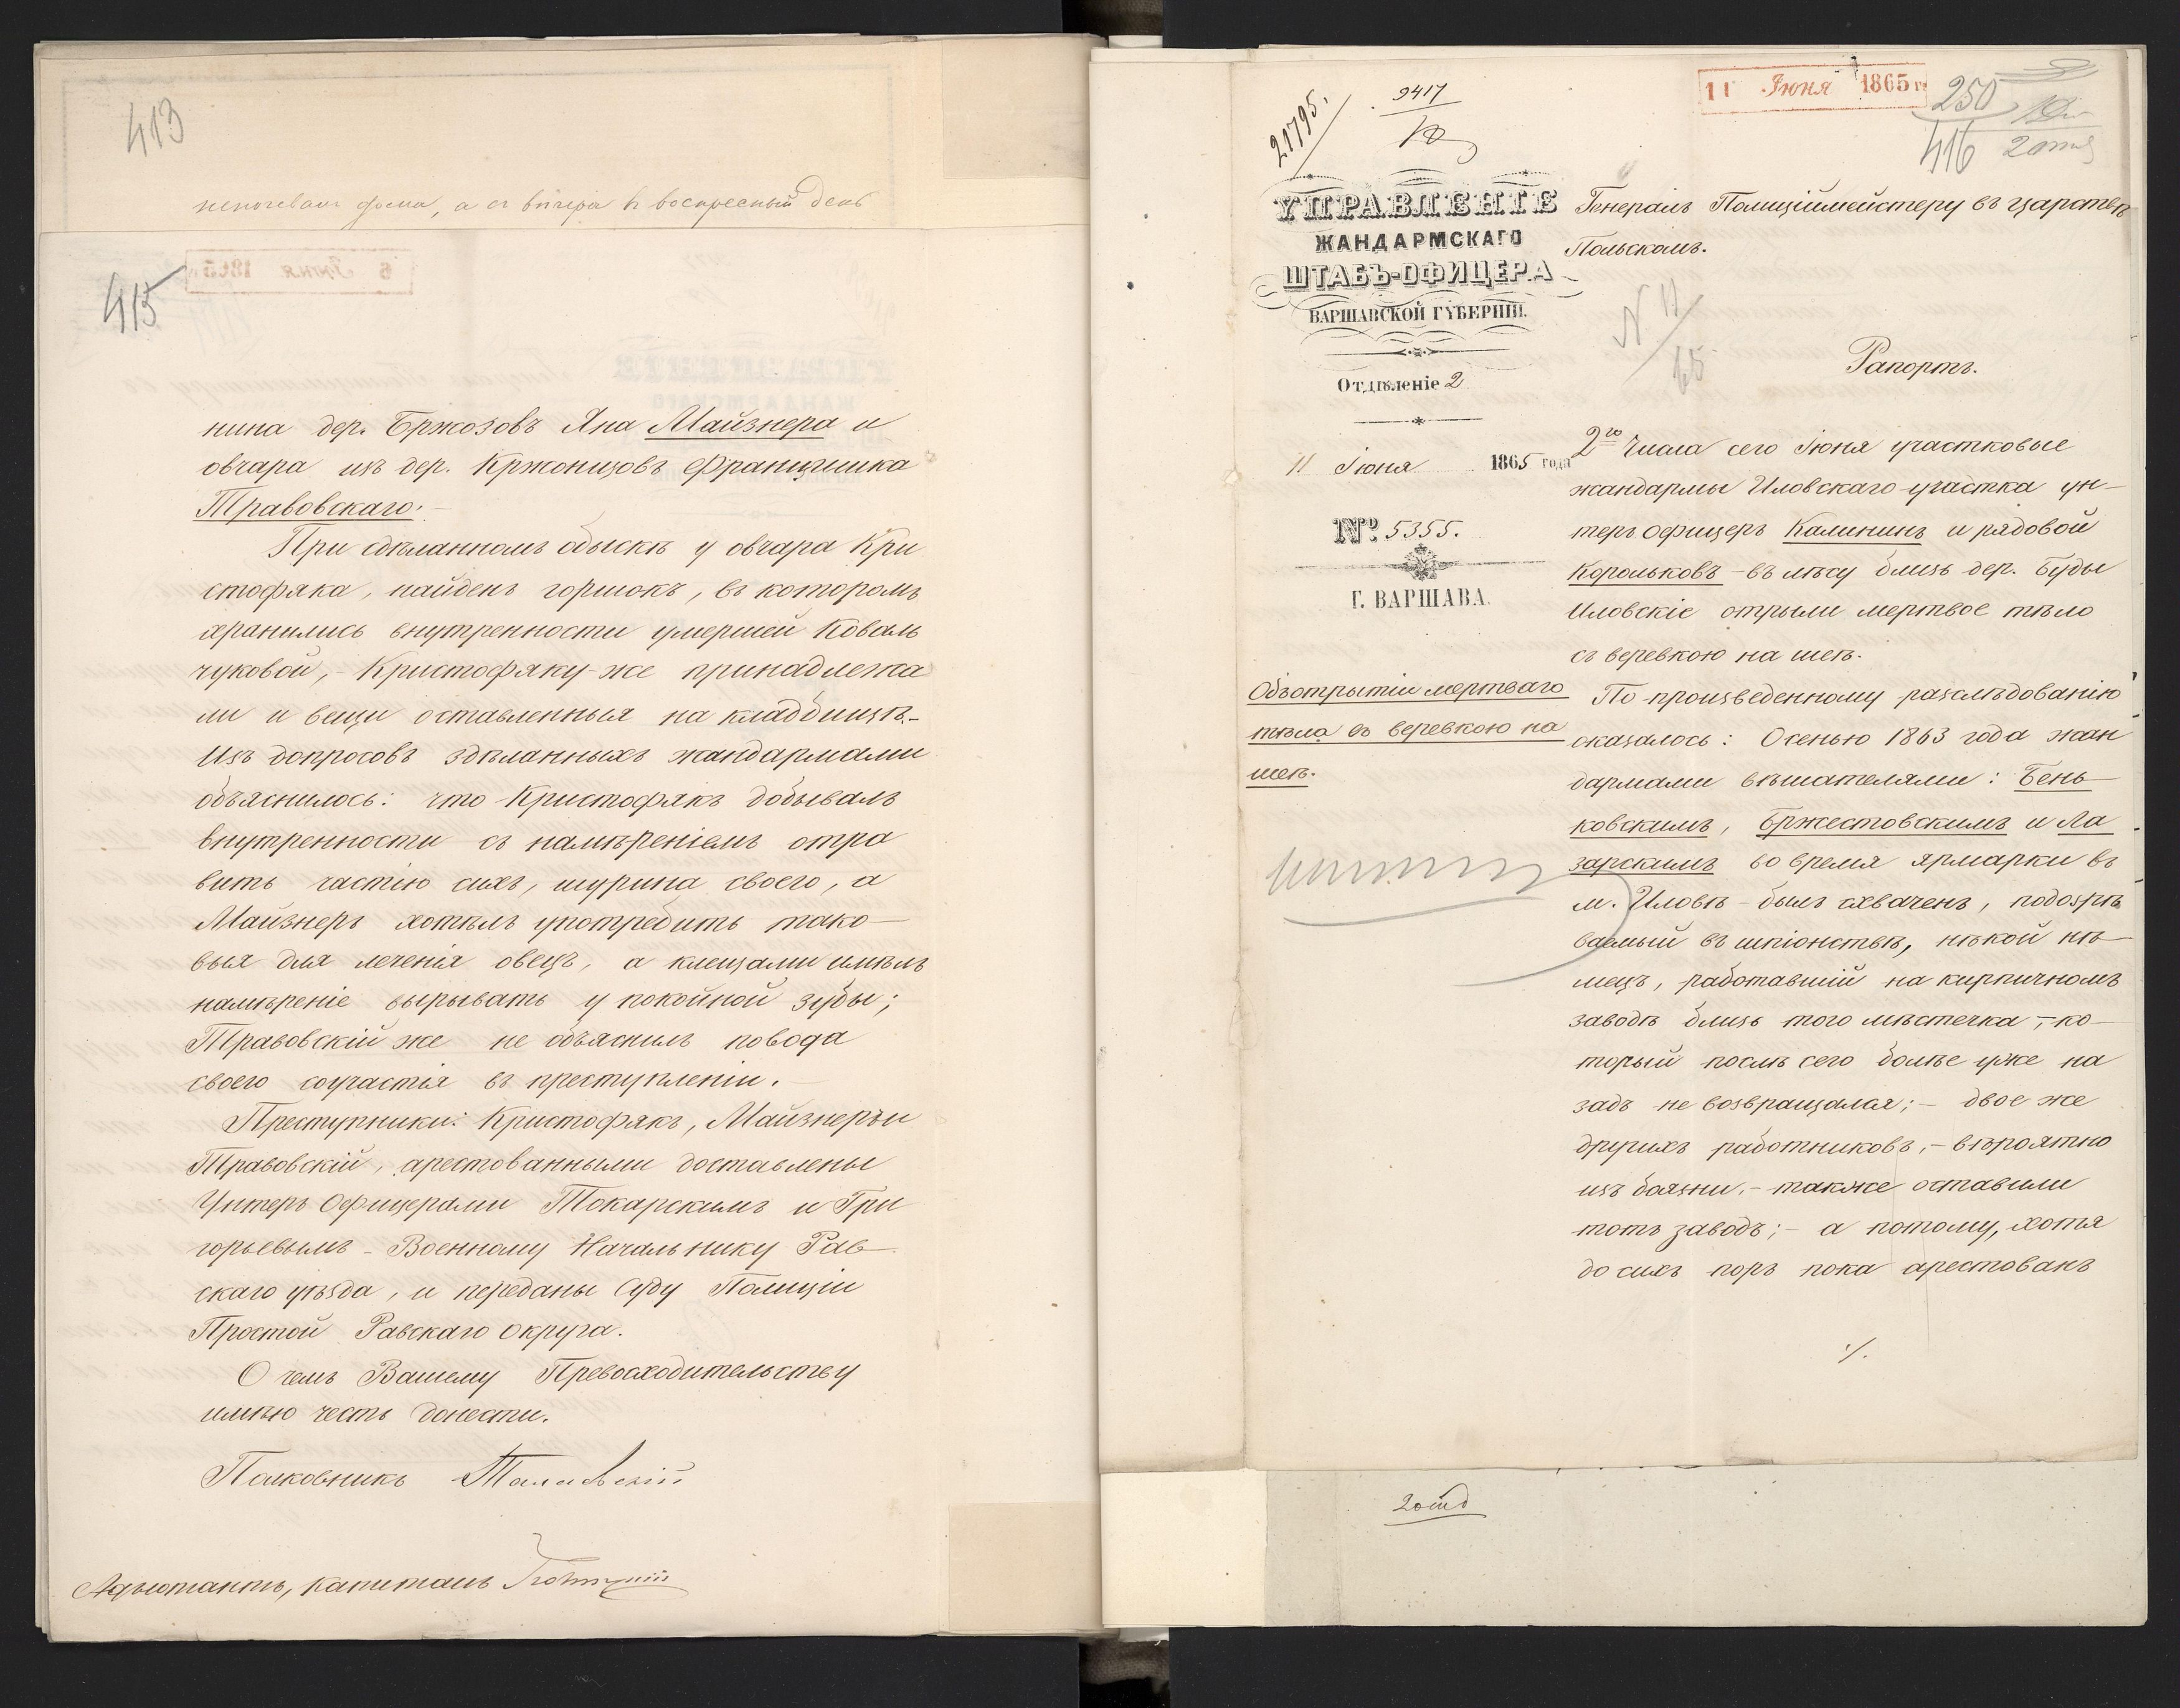 413
неночевалъ дома, а съ вечера въ воскресный день
415
6 Іюня 1865
нина дер. Бржозовъ Яна Майзнера и
овчара изъ дер. Кржонцовъ Францишка
Травовскаго.
При сдѣланномъ обыскѣ у овчара Кри
стофяка, найденъ горшокъ, въ которомъ
хранились внутренности умершей Коваль
чуковой, - Кристофяку-же принадлежа
ли и вещи оставленныя на кладбищѣ. -
Изъ допросовъ здѣланныхъ жандармами
объяснилось: что Кристофякъ добывалъ
внутренности съ намѣреніемъ отра
вить частію сихъ, шурина своего, а
Майзнеръ хотѣлъ употребить тако-
выя для леченія овецъ, а клещами имѣлъ
намѣреніе вырывать у покойной зубы;
Травовскій же не объяснилъ повода
своего соучастія въ преступленіи. -
Преступники: Кристофякъ, Майзнеръ и
Травовскій, арестованными доставлены
Унтеръ Офицерами Токарскимъ и Гри
горьевымъ - Военному Начальнику Рав-
скаго уѣзда, и переданы Суду Полиціи
Простой Равскаго Округа.
О чемъ Вашему Превосходительству
имѣю честь донести.
Полковникъ
Адъютантъ, Капитанъ
11 Іюня 1865 г.
21795.
9417
250
416
2 отд
УПРАВЛЕНІЕ
ЖАНДАРМСКАГО
ШТАБЪ-ОФИЦЕРА
ВАРШАВСКОЙ ГУБЕРНІИ.
Отдѣленіе 2
11 Іюня 1865 года
№ 5355.
Г. ВАРШАВА.
Объ отрытіи мертваго
тѣла съ веревкою на
шеѣ.
Генералъ Полиціймейстеру въ Царствѣ
Польскомъ.
N 17/65
Рапортъ.
2го Числа сего Іюня участковые
жандармы Иловскаго участка ун-
теръ офицеръ Калининъ и рядовой
Корольковъ - въ лѣсу близь дер. Буды
Иловскіе отрыли мертвое тѣло
съ веревкою на шеѣ.
По произведенному разслѣдованію
оказалось: Осенью 1863 года жан
дармами вѣшателями: Бень-
ковскимъ, Бржестовскимъ и Ла
зарскимъ во время ярмарки въ
м. Иловѣ - былъ схваченъ, подозрѣ
ваемый въ шпіонствѣ, нѣкой нѣ-
мецъ, работавшій на кирпичномъ
заводѣ близь того мѣстечка, - ко-
торый послѣ сего болѣе уже на
задъ не возвращался; - двое же
другихъ работниковъ, - вѣроятно
изъ боязни, - также оставили
тотъ заводъ; - а потому, хотя
до сихъ поръ пока арестованъ
./.
2 отд